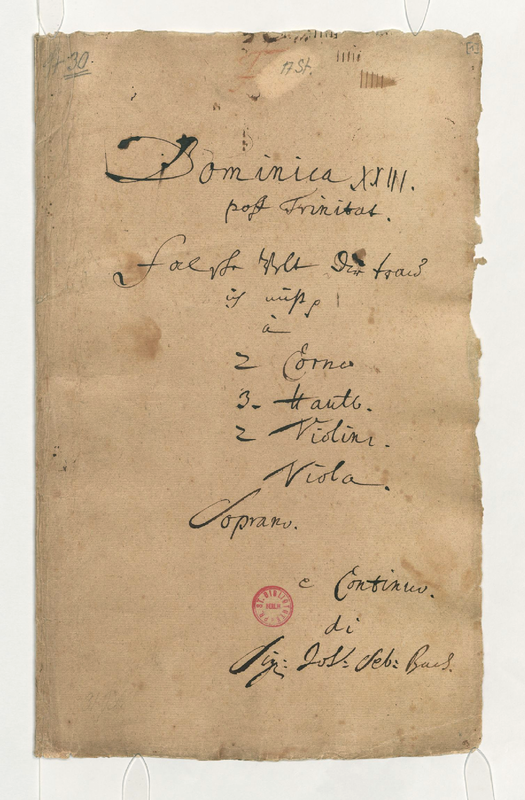 30.
17 St.
Dominica XXIII.
post Trinitat.
Falsche Welt Dir trau
ich nicht
à
2 Corne
3. Hautb.
2 Violini.
Viola.
Soprano.
e Continuo.
di
Sig: Joh: Seb: Bach.